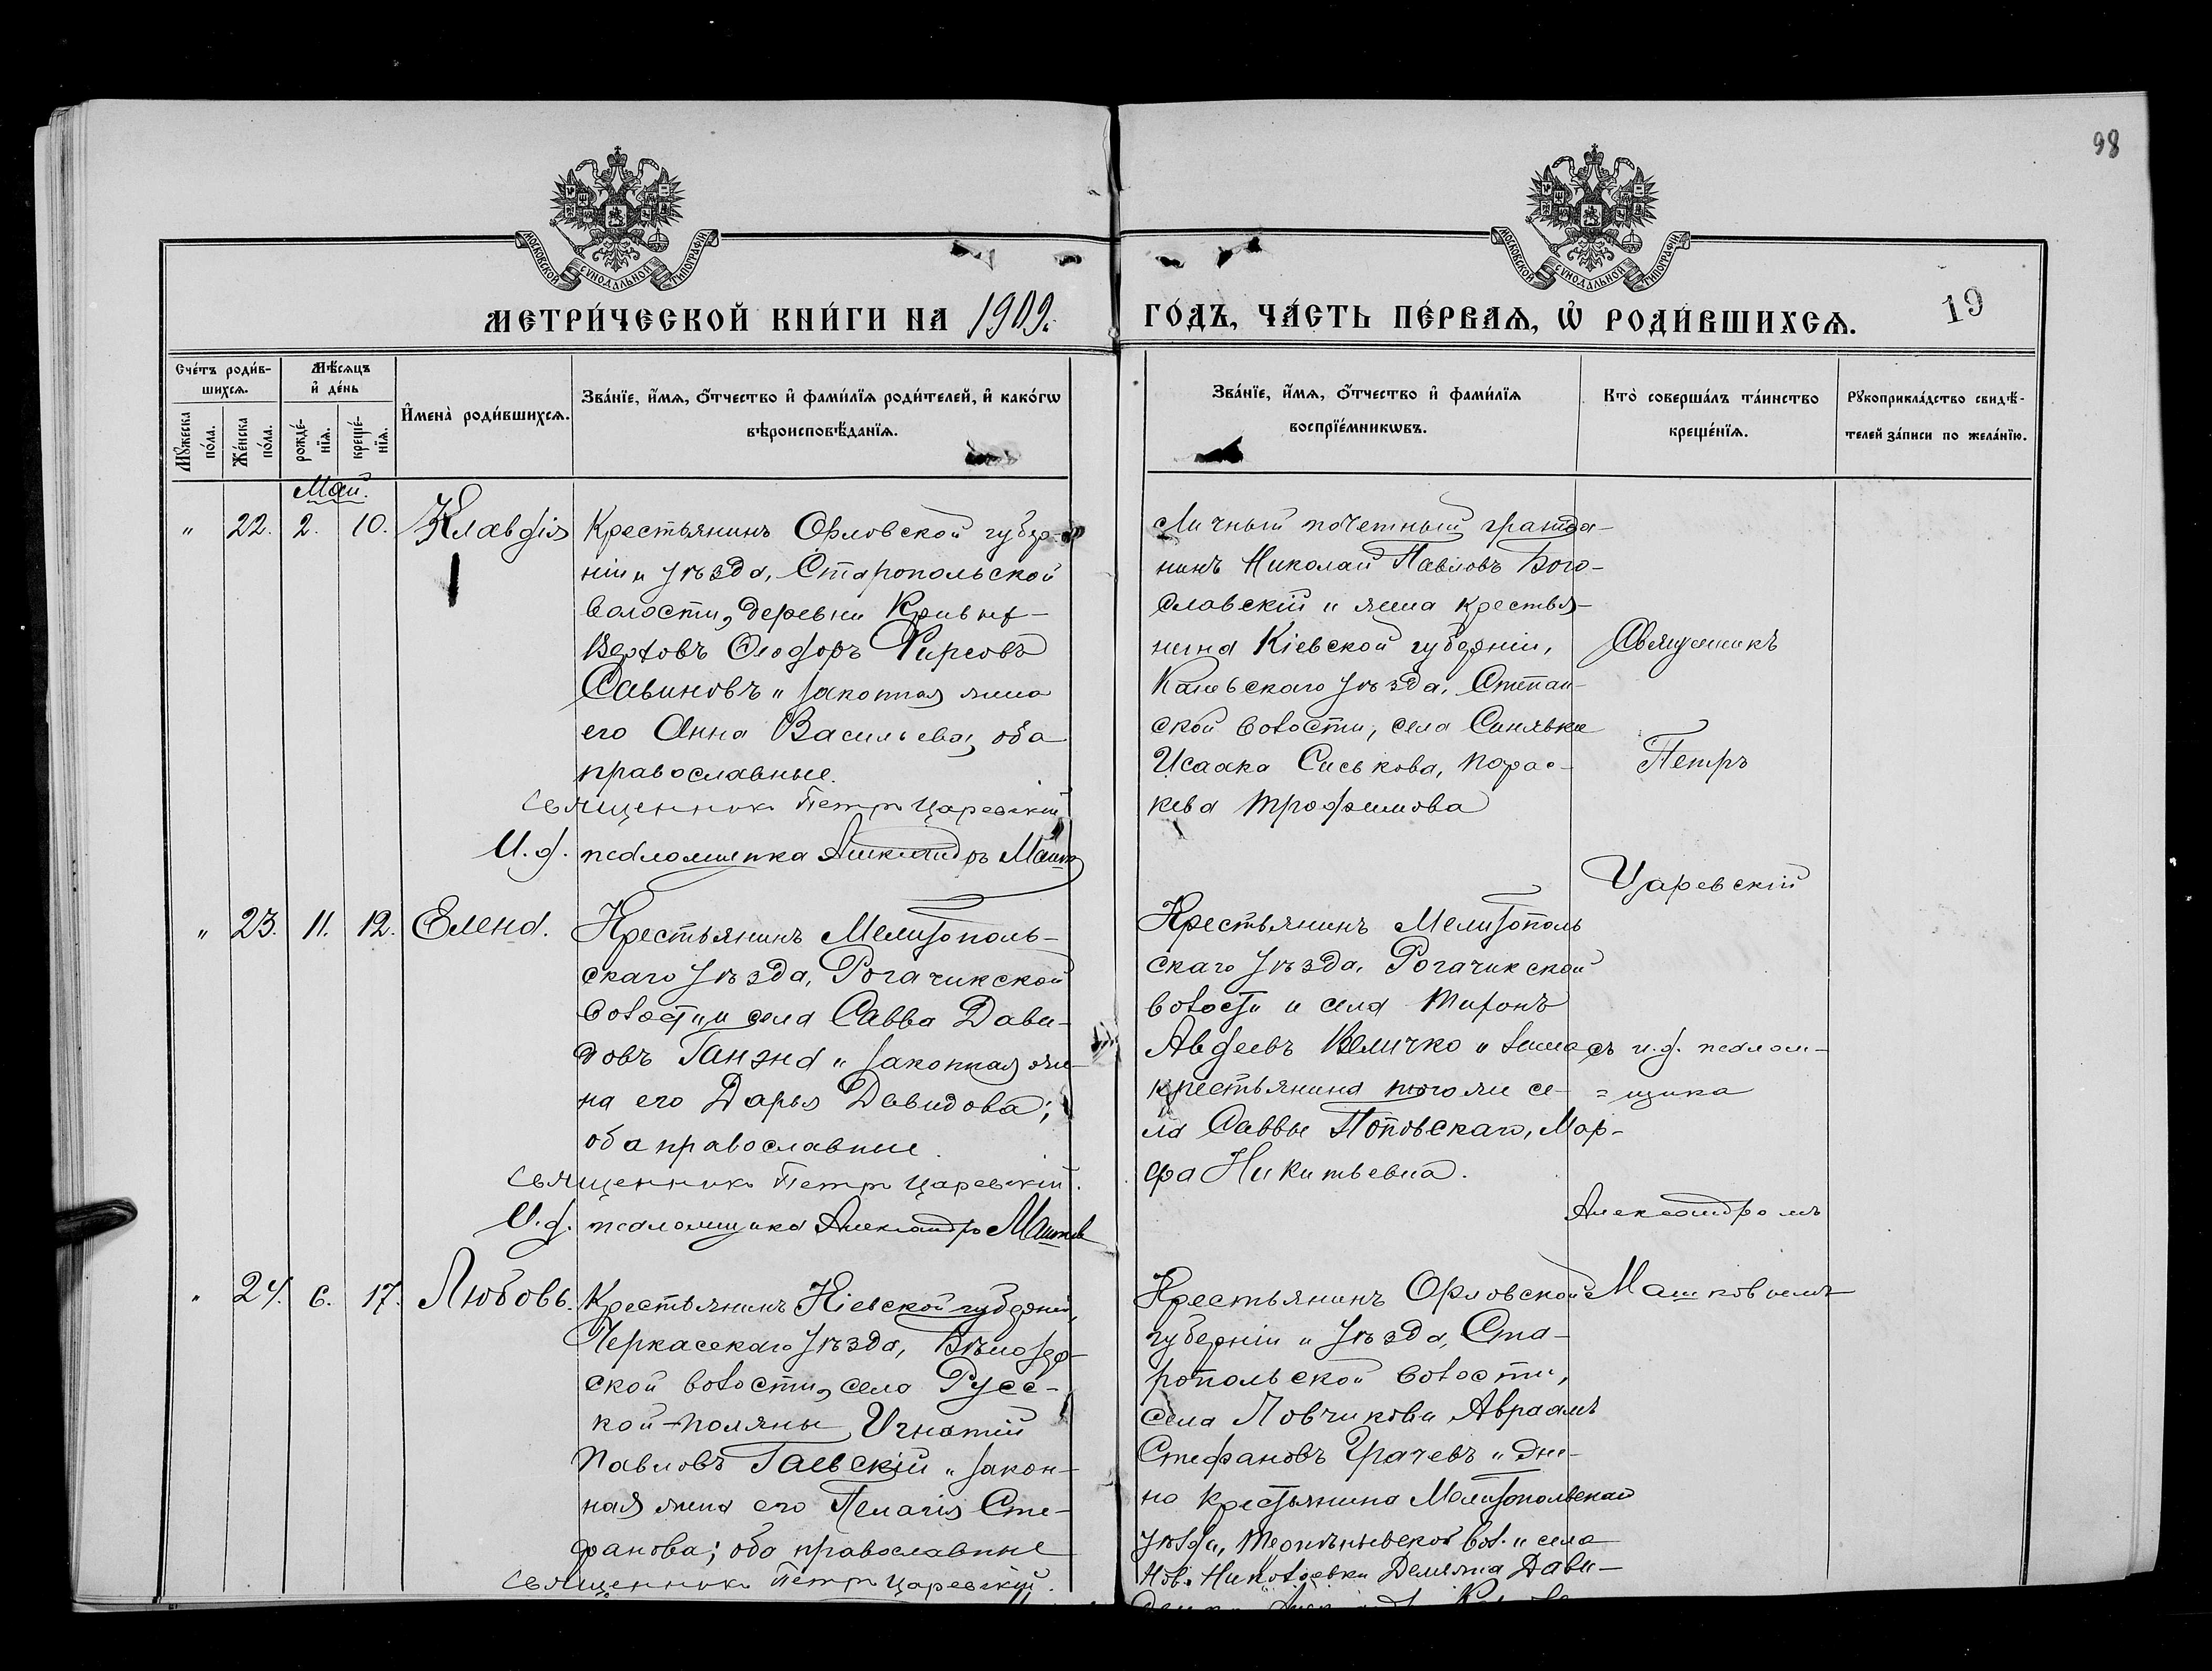 98
МОСКОВСКОЙ СѴНОДАЛЬНОЙ ТИПОГРАФІИ
МОСКОВСКОЙ СѴНОДАЛЬНОЙ ТИПОГРАФІИ
МЕТРИ́ЧЕСКОЙ КНИ́ГИ НА 1909 г.
ГО́ДЪ, ЧА́СТЬ ПЕ́РВАѦ, Ѡ҆ РОДИ́ВШИХСѦ.
19
Сче́тъ роди́в-
шихсѧ.
Мꙋ́жеска по́ла.
Же́нска по́ла.
Мѣ́сѧцъ
и҆ де́нь
рожде́-
нїѧ.
креще́-
нїѧ.
И҆мена̀ роди́вшихсѧ.
Зва́нїе, и҆́мѧ, ѻ҆́тчество и҆ фами́лїѧ роди́телей, и҆ како́гѡ
вѣроисповѣ́данїѧ.
Зва́нїе, и҆́мѧ, ѻ҆́тчество и҆ фами́лїѧ
воспрїе́мникѡвъ.
Кто̀ соверша́лъ та́инство
креще́нїѧ.
Рꙋкоприкла́дство свидѣ́-
телей за́писи по жела́нїю.
Май.
" 22. 2. 10. Клавдія
Крестьянинъ Орловской губер-
ніи и уѣзда, Старопольской
волости, деревни Кривыхъ-
Верховъ Ѳеодоръ Фирсовъ
Савиновъ и законная жена
его Анна Васильева, оба
православные.
Священникъ Петръ Царевскій
И. д. псаломщика Александръ Машк
Личный почетный гражда-
нинъ Николай Павловъ Бого-
словскій и жена крестья-
нина Кіевской губерніи,
Каневскаго уѣзда, Степан-
ской волости, села Синявки
Исаака Сиськова, Парас-
кева Трофимова
Священникъ
Петръ
Царевскій
" 23. 11. 12. Елена.
Крестьянинъ Мелитополь-
скаго уѣзда, Рогачикской
волости и села Савва Дави-
довъ Ганжа и законная же-
на его Дарья Давидова;
оба православные.
Священникъ Петръ Царевскій.
И. д. псаломщика Александръ Машков
Крестьянинъ Мелитополь
скаго уѣзда, Рогачикской
волости и села Тихонъ
Авдеевъ Величко и жена
крестьянина того же се-
ла Саввы Поповскаго, Мар-
фа Никитьевна.
съ и. д. псалом-
= щика
Александромъ
Машковымъ
" 24. 6. 17. Любовь.
Крестьянинъ Кіевской губерніи,
Черкасскаго уѣзда, Бѣлозер-
ской волости, села Русс-
кой-Поляны Игнатій
Павловъ Гаевскій и закон-
ная жена его Пелагія Сте-
фанова; оба православные
Священникъ Петръ Царевскій.
Крестьянинъ Орловской
губерніи и уѣзда, Ста-
ропольской волости,
села Ловчикова Авраамъ
Стефановъ Грачевъ и
крестьянина Мелитопольскаго
уѣзда, вол. и села
Ново Николаевки Демьяна Дави-